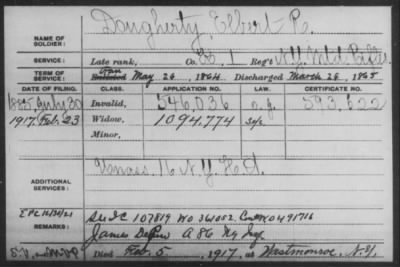 NAME OF SOLDIER: Dougherty, Elbert R.
SERVICE: Late rank, Co. I, Reg't N.Y. Mtd. Rifles
TERM OF SERVICE: Enlisted May 26, 1864, Discharged March 28, 1865
DATE OF FILING. CLASS. APPLICATION NO. LAW. CERTIFICATE NO.
1885, July 30 Invalid, 546,036 593,622
1917, Feb. 23 Widow, 1094,774
Minor,
ADDITIONAL SERVICES: Unass. 16 N.Y. H.A.
REMARKS: 107819 WO 361002
James A 86 Ny Inf
Died Feb. 5, 1917, at Westmonroe, N.Y.